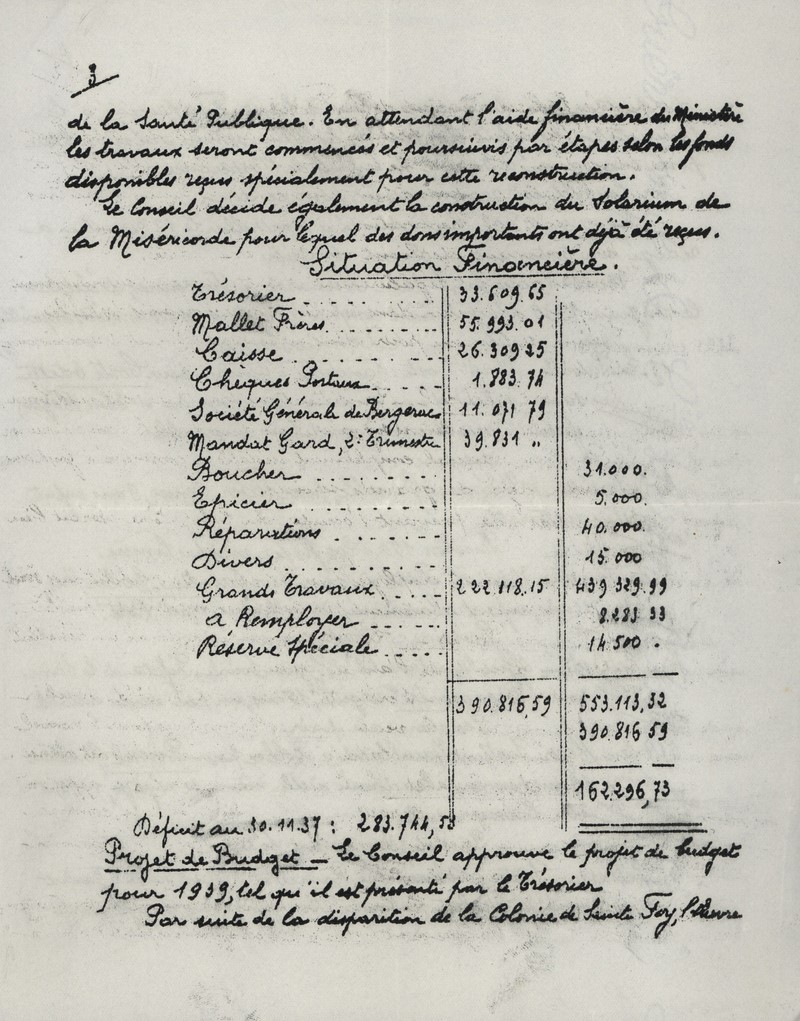 3
de la Santé Publique. En attendant l'aide financière du Ministère
les travaux seront commencés et poursuivis par étapes selon les fonds
disponibles reçus spécialement pour cette reconstruction.
Le Conseil décide également la construction du Solarium de
la Miséricorde pour lequel des dons importants ont déjà été reçus.
Situation Financière.
Trésorier . . . . . . . . 33.609.65
Mallet Frères . . . . . . . . 55.993.01
Caisse . . . . . . . . 26.309 25
Chèques Postaux . . . . . 1.883.74
Société Générale de Bergerac 11.071 79
Mandat Gard, 2e Trimestre 39.831 "
Boucher . . . . . . . . 31.000.
Epicier . . . . . . . . 5.000.
Réparations . . . . . . 40.000.
Divers . . . . . . . . . 15.000
Grands Travaux . . . . . 222.118.15 439 329.99
a Remployer . . . . . 8.283 33
Réserve Spéciale . . . . 14.500 .
390.816,59 553.113,32
390.816 59
162.296,73
Déficit au 30.11.37 : 283.744,53
Projet de Budget _ Le Conseil approuve le projet de budget
pour 1939, tel qu'il est présenté par le Trésorier
Par suite de la disparition de la Colonie de Sainte Foy, l'Œuvre